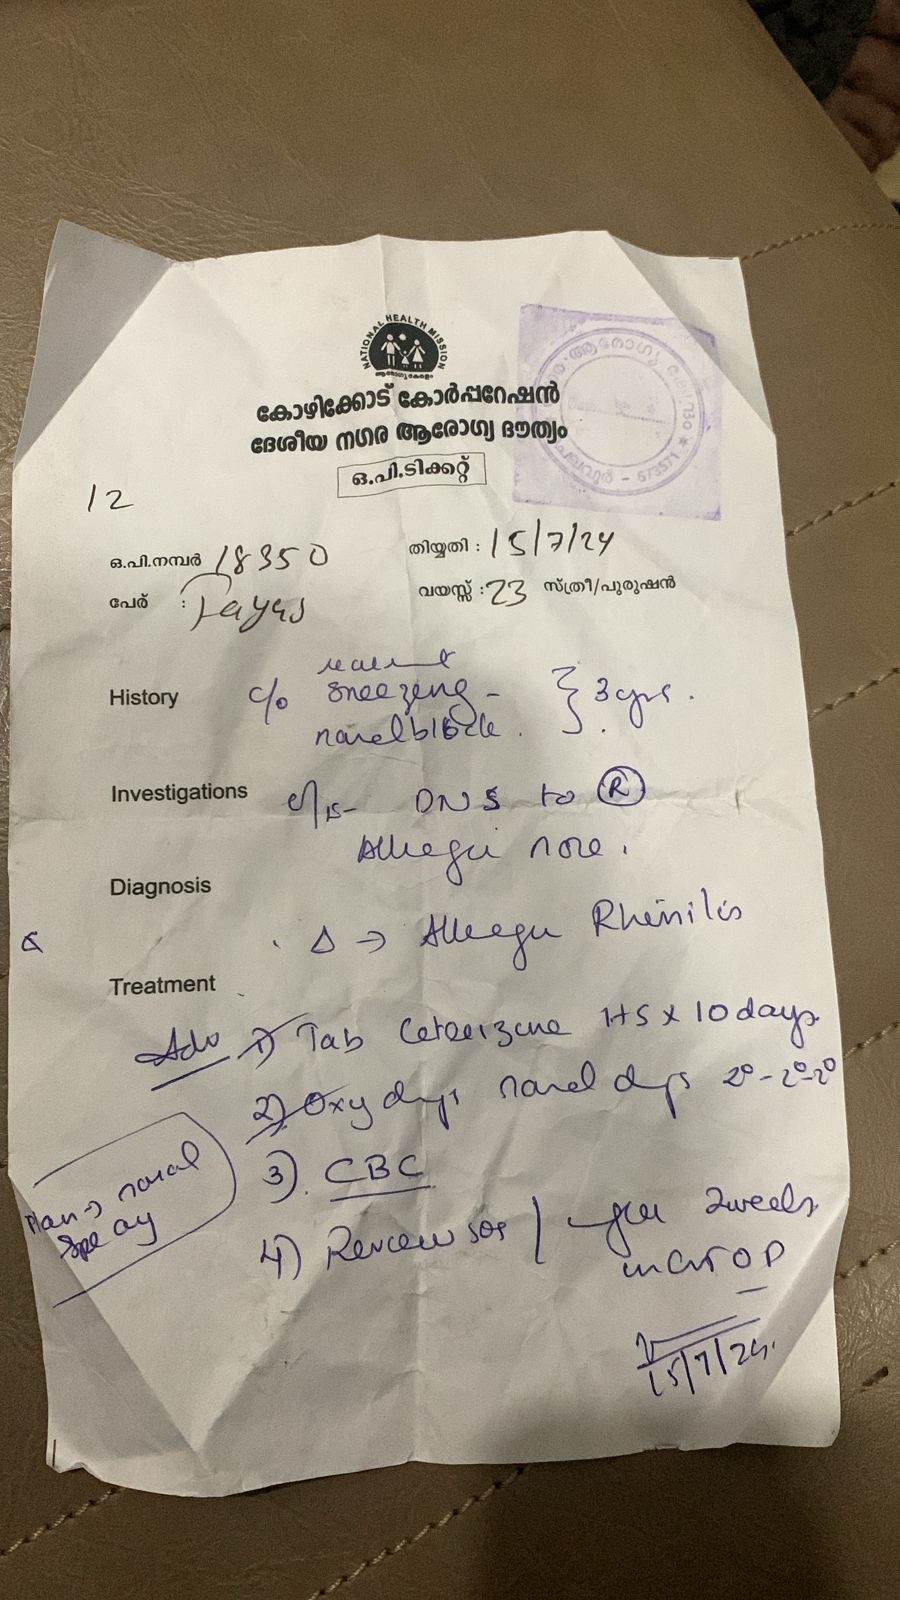 NATIONAL HEALTH MISSION
ആരോഗ്യകേരളം
കോഴിക്കോട് കോർപ്പറേഷൻ
ദേശീയ നഗര ആരോഗ്യ ദൗത്യം
ഒ.പി.ടിക്കറ്റ്
ആരോഗ്യ കേന്ദ്രം
673571
12
ഒ.പി.നമ്പർ 18350 തിയ്യതി : 15/7/24
പേര് : വയസ്സ് : 23 സ്ത്രീ/പുരുഷൻ
History c/o sneezing - } 3 yrs.
nasal block.
Investigations DNS to R
Allergic nose.
Diagnosis
Δ → Allergic Rhinitis
Treatment
Adv 1) Tab Cetirizine HS x 10 days
2) Oxy drops nasal drops 2°-2°-2°
3). CBC
Plan → nasal
spray
4) Review sos / after 2 weeks
in ENT OP
15/7/24.